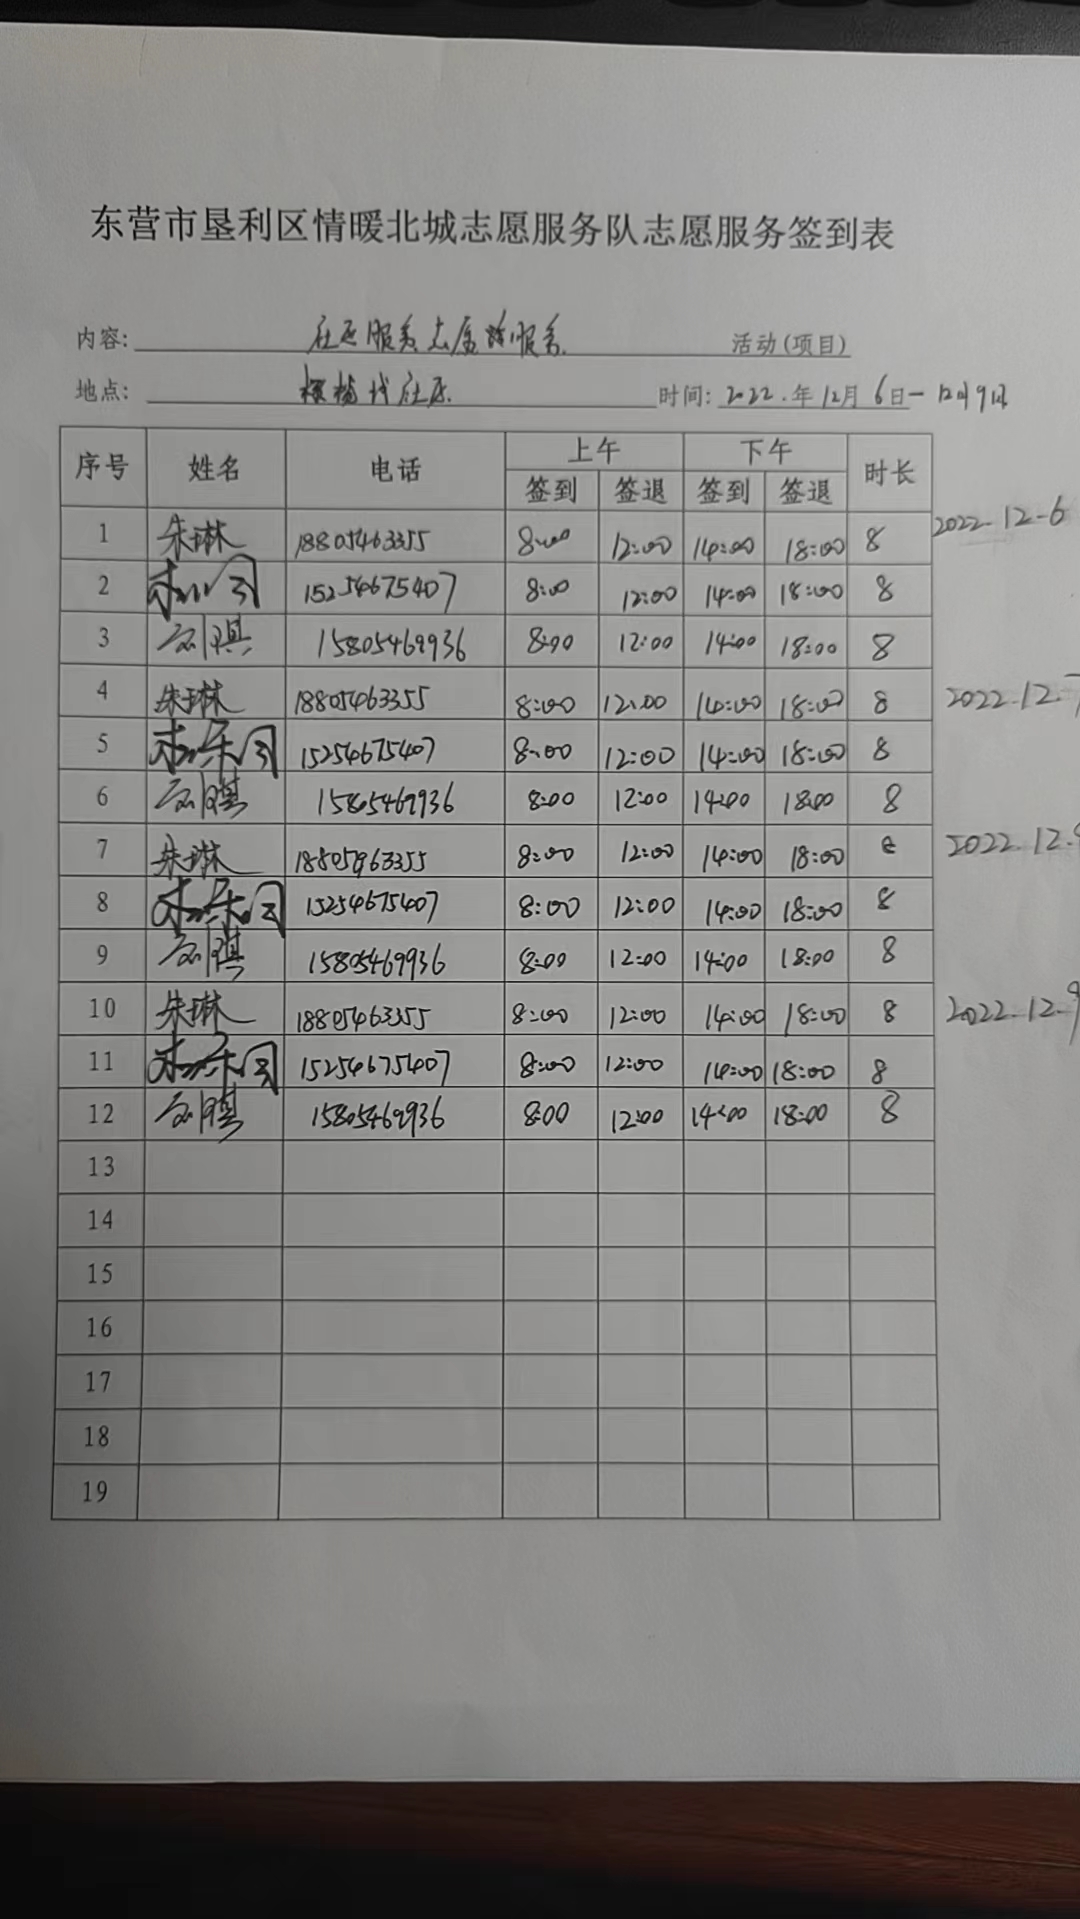 东营市垦利区情暖北城志愿服务队志愿服务签到表
内容: 社区服务志愿服务 活动(项目)
地点: 社区 时间: 2022.年12月6日-12月9日
序号 姓名 电话 上午 下午 时长
签到 签退 签到 签退
1 朱琳 18805463355 8:00 12:00 14:00 18:00 8 2022.12-6
2 15254675407 8:00 12:00 14:00 18:00 8
3 15805469936 8:00 12:00 14:00 18:00 8
4 朱琳 18805463355 8:00 12:00 14:00 18:00 8 2022.12.7
5 15254675407 8:00 12:00 14:00 18:00 8
6 15805469936 8:00 12:00 14:00 18:00 8
7 朱琳 18805463355 8:00 12:00 14:00 18:00 8 2022.12.
8 15254675407 8:00 12:00 14:00 18:00 8
9 15805469936 8:00 12:00 14:00 18:00 8
10 朱琳 18805463355 8:00 12:00 14:00 18:00 8 2022.12.9
11 15254675407 8:00 12:00 14:00 18:00 8
12 15805469936 8:00 12:00 14:00 18:00 8
13
14
15
16
17
18
19